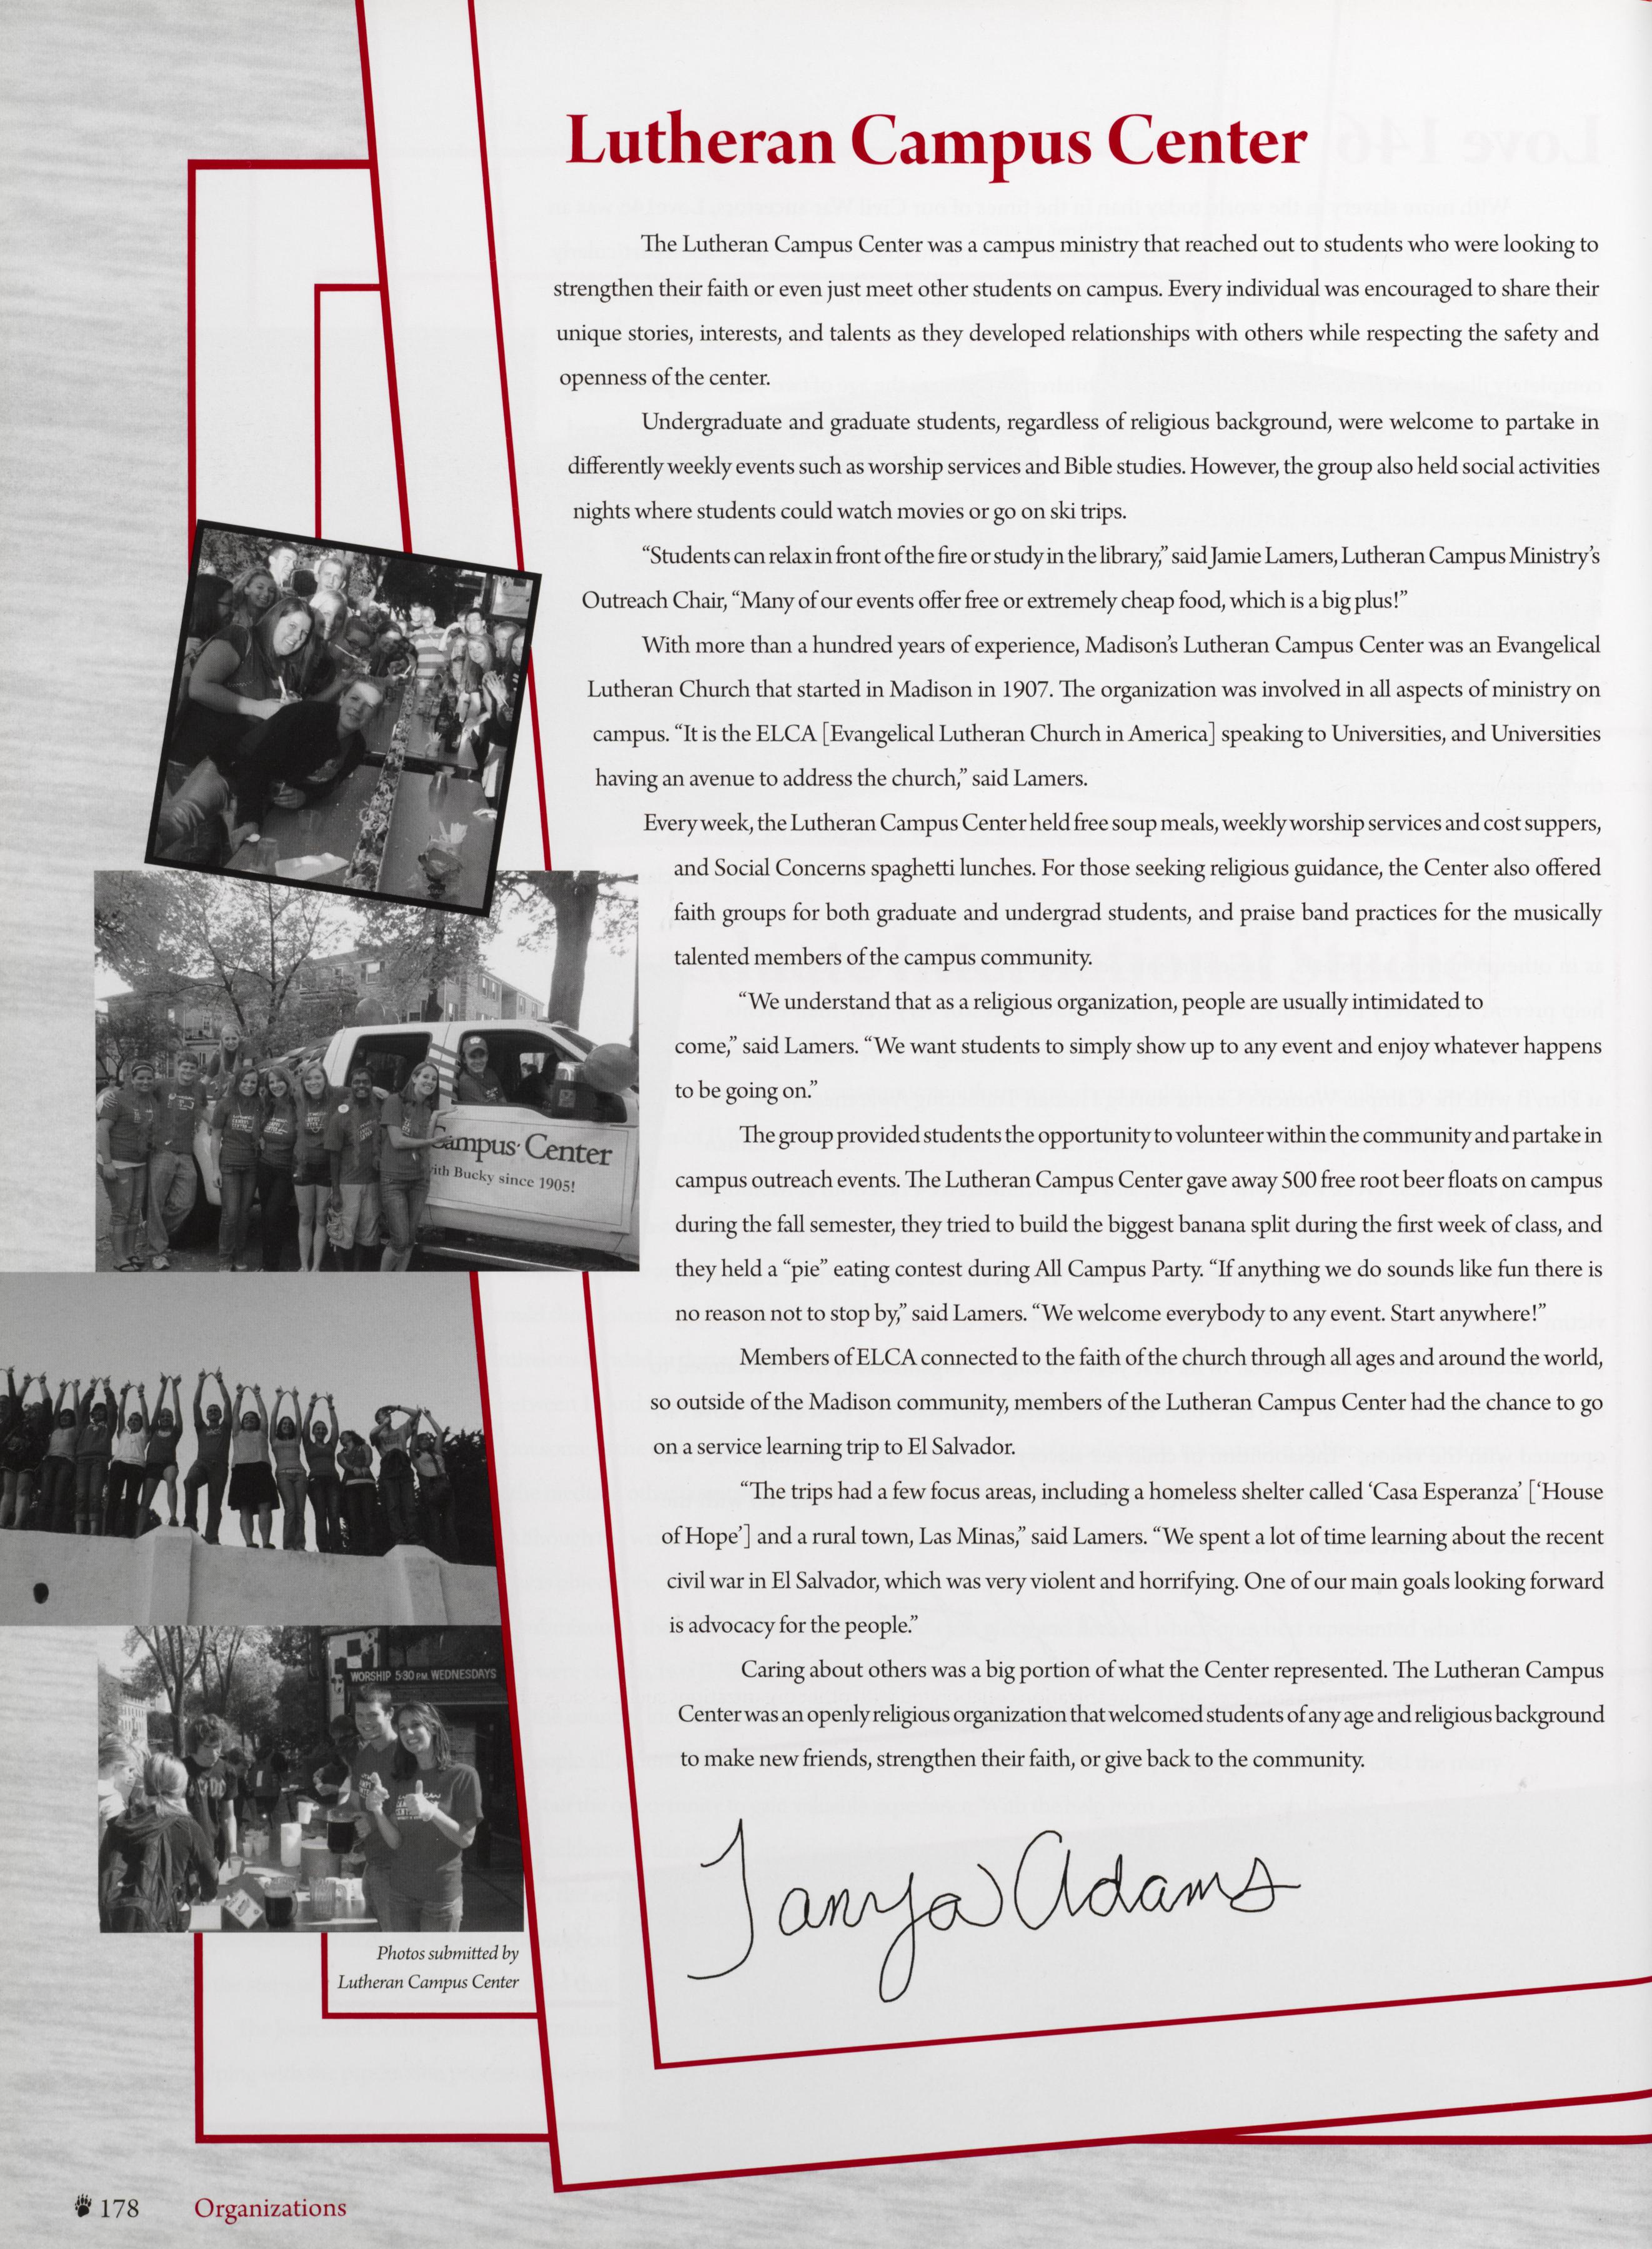 Lutheran Campus Center
The Lutheran Campus Center was a campus ministry that reached out to students who were looking to
strengthen their faith or even just meet other students on campus. Every individual was encouraged to share their
unique stories, interests, and talents as they developed relationships with others while respecting the safety and
openness of the center.
Undergraduate and graduate students, regardless of religious background, were welcome to partake in
differently weekly events such as worship services and Bible studies. However, the group also held social activities
nights where students could watch movies or go on ski trips.
“Students can relax in front of the fire or study in the library,” said Jamie Lamers, Lutheran Campus Ministry’s
Outreach Chair, “Many of our events offer free or extremely cheap food, which is a big plus!”
With more than a hundred years of experience, Madison’s Lutheran Campus Center was an Evangelical
Lutheran Church that started in Madison in 1907. The organization was involved in all aspects of ministry on
campus. “It is the ELCA [Evangelical Lutheran Church in America] speaking to Universities, and Universities
having an avenue to address the church,” said Lamers.
Every week, the Lutheran Campus Center held free soup meals, weekly worship services and cost suppers,
and Social Concerns spaghetti lunches. For those seeking religious guidance, the Center also offered
faith groups for both graduate and undergrad students, and praise band practices for the musically
talented members of the campus community.
“We understand that as a religious organization, people are usually intimidated to
come,” said Lamers. “We want students to simply show up to any event and enjoy whatever happens
to be going on.”
The group provided students the opportunity to volunteer within the community and partake in
campus outreach events. The Lutheran Campus Center gave away 500 free root beer floats on campus
during the fall semester, they tried to build the biggest banana split during the first week of class, and
they held a “pie” eating contest during All Campus Party. “If anything we do sounds like fun there is
no reason not to stop by,” said Lamers. “We welcome everybody to any event. Start anywhere!”
Members of ELCA connected to the faith of the church through all ages and around the world,
so outside of the Madison community, members of the Lutheran Campus Center had the chance to go
on a service learning trip to El Salvador.
“The trips had a few focus areas, including a homeless shelter called ‘Casa Esperanza’ [‘House
of Hope’] and a rural town, Las Minas,” said Lamers. “We spent a lot of time learning about the recent
civil war in El Salvador, which was very violent and horrifying. One of our main goals looking forward
is advocacy for the people.”
Caring about others was a big portion of what the Center represented. The Lutheran Campus
Center was an openly religious organization that welcomed students of any age and religious background
to make new friends, strengthen their faith, or give back to the community.
Tanya Adams
Campus Center
with Bucky since 1905!
WORSHIP 5:30 PM WEDNESDAYS
Photos submitted by
Lutheran Campus Center
178 Organizations